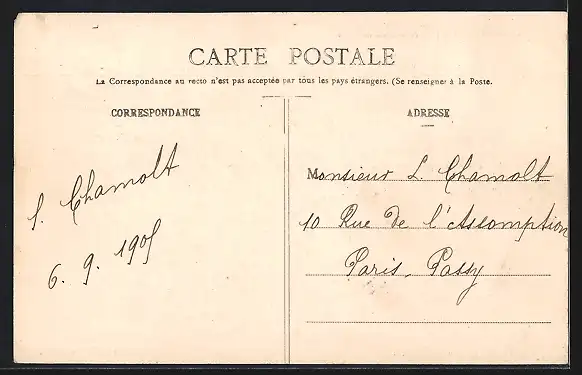 CARTE POSTALE
La Correspondance au recto n'est pas acceptée par tous les pays étrangers. (Se renseigner à la Poste.
CORRESPONDANCE
ADRESSE
Monsieur L. Chamolt
10 Rue de l'Assomption
Paris. Passy
L. Chamolt
6. 9. 1905